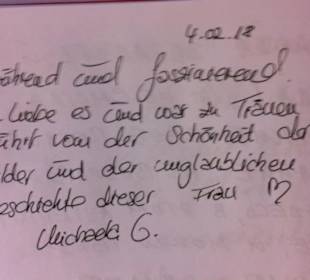 4.02.18
ührend und faszinierend.
Liebe es und war zu Tränen
ührt von der Schönheit der
lder und der unglaublichen
eschichte dieser Frau ♡
Michaela G.